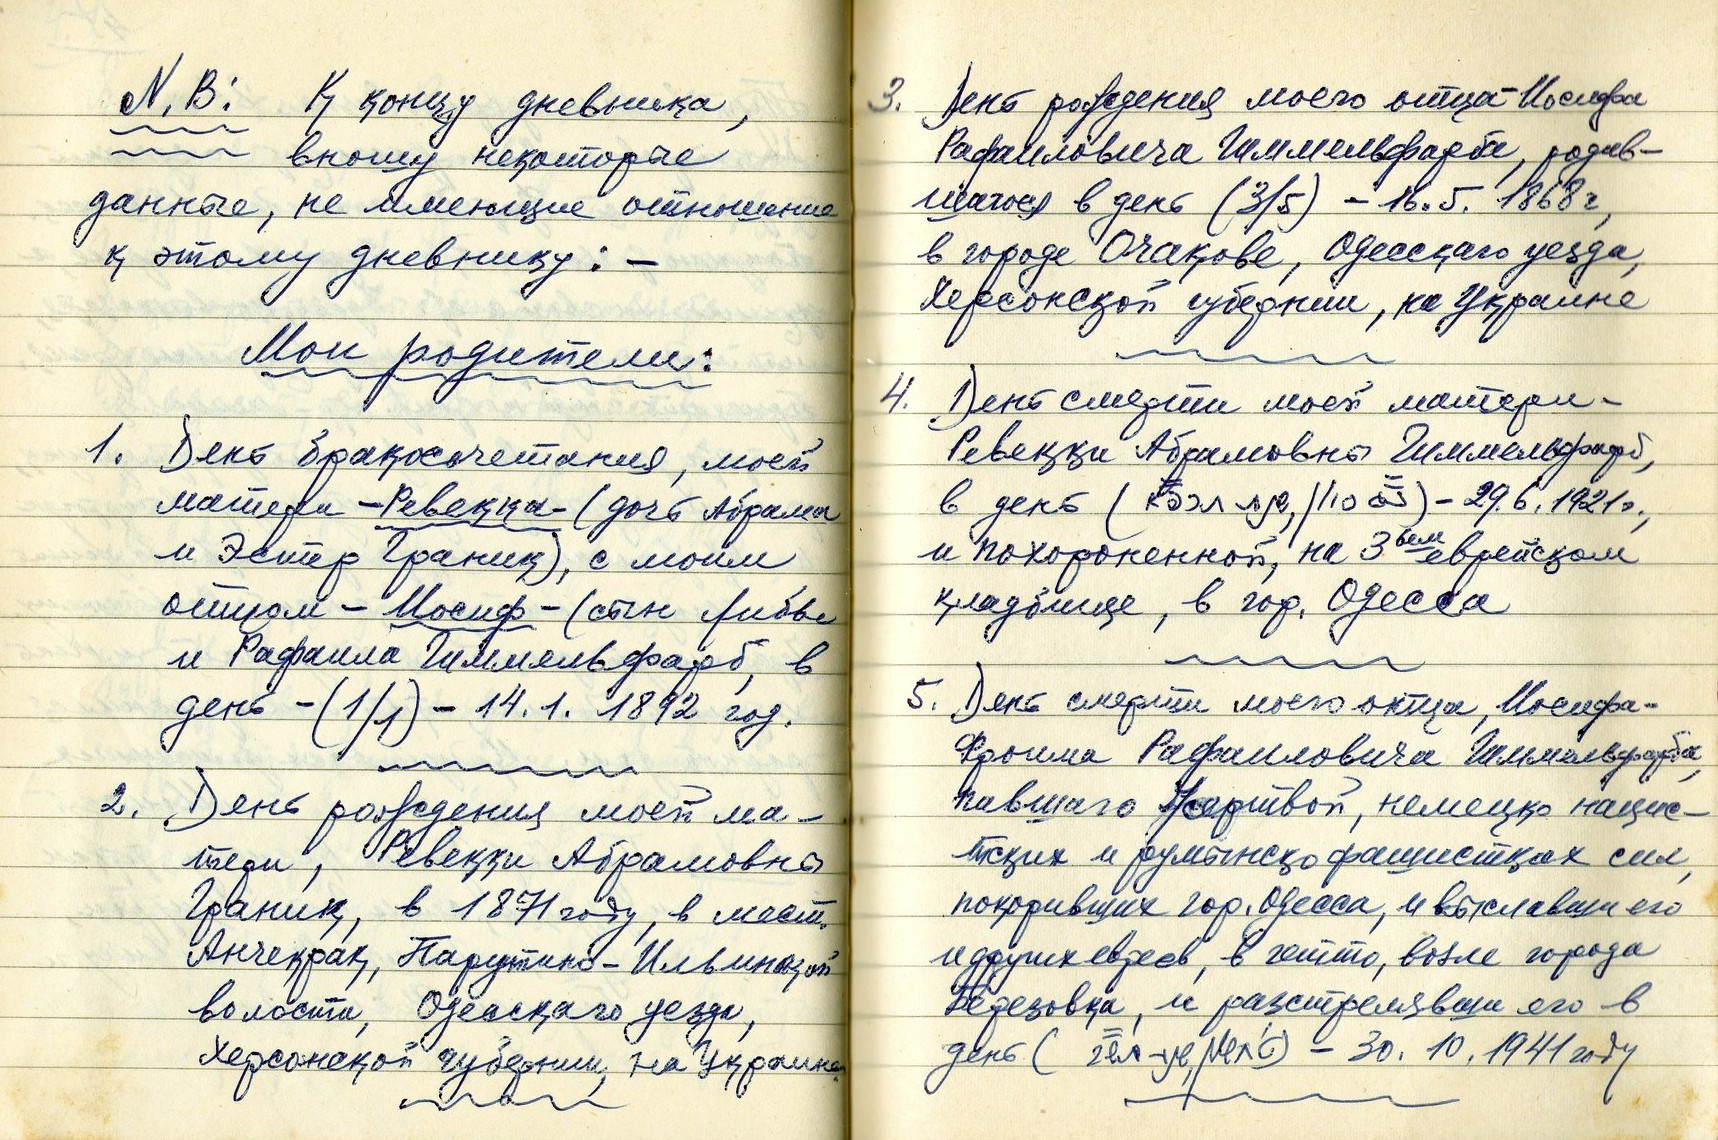 N.B: К концу дневника,
вношу некоторые
данные, не имеющие отношение
к этому дневнику: –
Мои родители:
1. День бракосочетания, моей
матери – Ревекка – (дочь Абрама
и Эстер Граник), с моим
отцом – Иосиф – (сын Любви
и Рафаила Гиммельфарб, в
день – (1/1) – 14.1. 1892 год.
2. День рождения моей ма-
тери, Ревекки Абрамовны
Граник, в 1871 году, в мест.
Анчекрак, Парутино-Ильинской
волости, Одесскаго уезда,
Херсонской губернии, на Украине
3. День рождения моего отца Иосифа
Рафаиловича Гиммельфарба, родив-
шагося в день (3/5) – 16.5. 1868 г,
в городе Очакове, Одесскаго уезда,
Херсонской губернии, на Украине
4. День смерти моей матери –
Ревекки Абрамовны Гиммельфарб,
в день ( ) – 29.6.1921г.,
и похороненной, на 3 еврейском
кладбище, в гор. Одесса
5. День смерти моего отца, Иосифа-
Фроима Рафаиловича Гиммельфарба,
павшаго жертвой, немецко нацис-
тских и румынско фашистках сил,
покоривших гор. Одесса, и выславши его
и других евреев, в гетто, возле города
Березовка, и разстрелявши его в
день ( ) – 30. 10. 1941 году